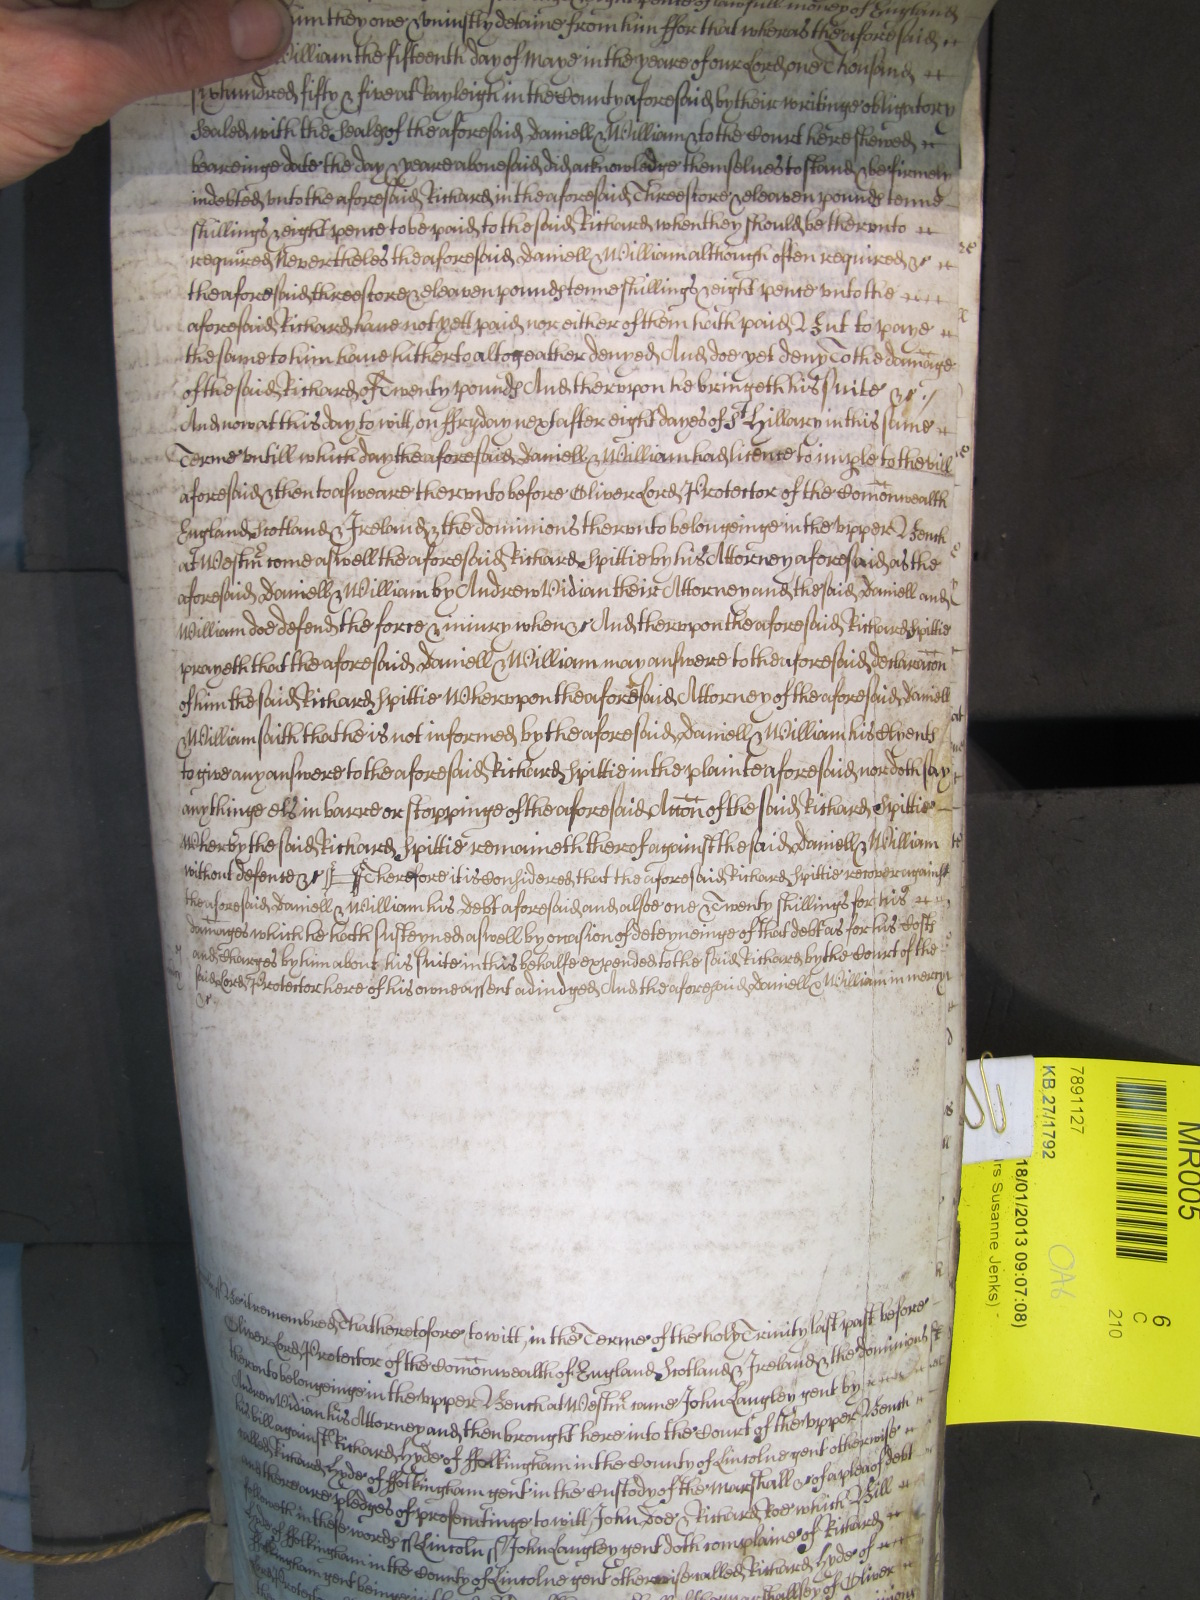 pence of lawfull money of England
him they owe & uniustly detaine from him ffor that wheras the aforesaid
William the fifteenth day of Maye in the yeare of our Lord one Thousand
sixhundred fifty & five at Rayleigh in the County aforesaid by their writinge obligatory
sealed with the seales of the aforesaid Daniell & William & to the Court here shewed
beareinge date the day & yeare abovesaid did acknowledge themselves to stand & be firmely
indebted unto the aforesaid Richard in the aforesaid Threescore & eleaven pounds tenne
shillings & eight pence to be paid to the said Richard when they should be therunto
required Nevertheles the aforesaid Daniell & William although often required &c
the aforesaid threescore & eleaven pounds tenne shillings & eight pence unto the
aforesaid Richard have not yett paid nor either of them hath paid But to paye
the same to him have hitherto altogeather denyed And doe yet deny To the damage
of the said Richard of Twenty pounds And therupon he bringeth his suite &c
And now at this day to witt on ffryday next after eight dayes of St Hillary in this same
Terme untill which day the aforesaid Daniell & William had licence to imple to the bill
aforesaid & then to asweare therunto before Oliver Lord Protector of the Comonwealth
England Scotland & Ireland & the dominions therunto belongeinge in the upper Bench
at Westm come aswell the aforesaid Richard Spittie by his Attorney aforesaid as the
aforesaid Daniell & William by Andrew Vidian their Attorney and the said Daniell and
William doe defend the force & iniury when &c And therupon the aforesaid Richard Spittie
prayeth that the aforesaid Daniell & William may answere to the aforesaid declaracon
of him the said Richard Spittie Wherupon the aforesaid Attorney of the aforesaid Daniell
& William saith that he is not informed by the aforesaid Daniell & William his Clyents
to give any answere to the aforesaid Richard Spittie in the plainte aforesaid nor doth say
any thinge els in barre or stoppinge of the aforesaid Accon of the said Richard Spittie
Wherby the said Richard Spittie remaineth therof against the said Daniell & William
without defence &c Therefore it is Considered that the aforesaid Richard Spittie recover against
the aforesaid Daniell & William his debt aforesaid and alsoe one & Twenty shillings for his
damages which he hath susteyned aswell by occasion of deteyneinge of that debt as for his Costs
and Charges by him about his suite in this behalfe expended to the said Richard by the Court of the
said Lord Protector here of his owne assent adiudged And the aforesaid Daniell & William in mercy
&c
Be it remembred That heretofore to witt in the Terme of the holy Trinity last past before
Oliver Lord Protector of the Comonwealth of England Scotland & Ireland & the dominions
therunto belongeinge in the upper Bench at Westm came John Langley gent by
Andrew Vidian his Attorney and then brought here into the Court of the upper Bench
his bill against Richard Hyde of ffolkingham in the County of Lincolne gent otherwise
called Richard Hyde of ffolkingham gent in the Custody of the Marshall &c of a plea of debt
and there are pledges of prosecutinge to witt John Doe & Richard Roe which Bill
followeth in these words ss Lincoln ss John Langley gent doth complaine of Richard
Hyde of ffolkingham in the County of Lincolne gent otherwise called Richard Hyde of
ffolkingham gent being in the Marshallsey of Oliver
Lord Protector
MR005
6
C
210
7891127
KB 27/1792
OA6
18/01/2013 09:07:08)
rs Susanne Jenks) -